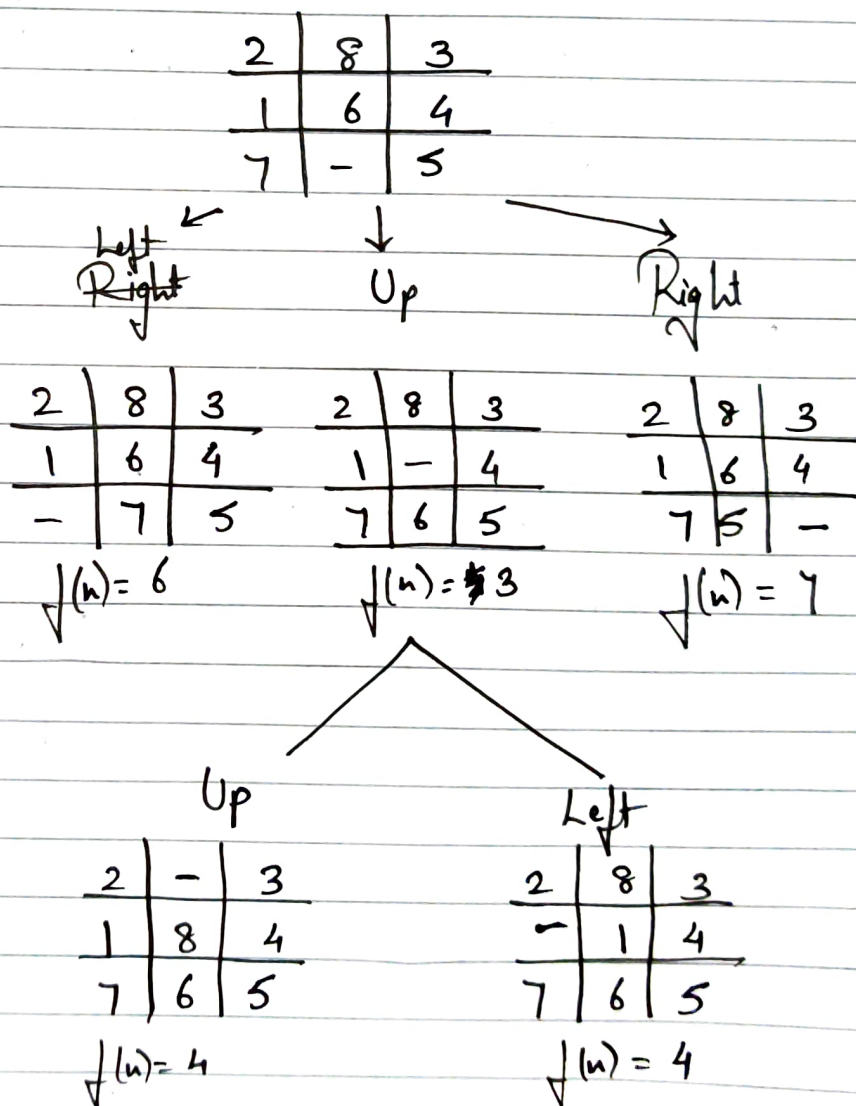 2 8 3
1 6 4
7 - 5
Left
Right
Up
Right
2 8 3
1 6 4
- 7 5
f(n) = 6
2 8 3
1 - 4
7 6 5
f(n) = 3
2 8 3
1 6 4
7 5 -
f(n) = 7
Up
2 - 3
1 8 4
7 6 5
f(n) = 4
Left
2 8 3
- 1 4
7 6 5
f(n) = 4